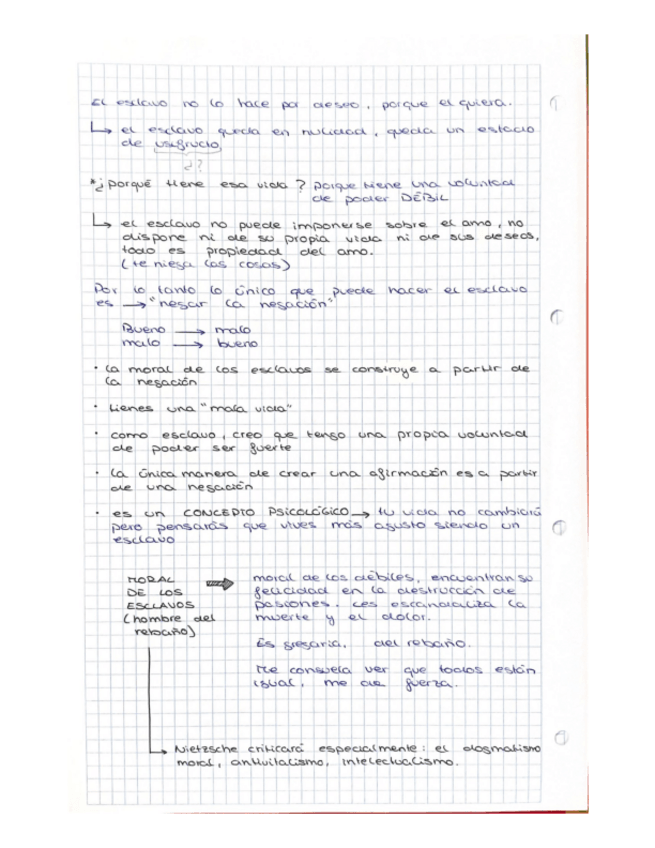 El esclavo no lo hace por deseo, porque el quiera.
↳ el esclavo queda en nulidad, queda un estado
de usufructo
¿?
*¿porqué tiene esa vida? porque tiene una voluntad
de poder DÉBIL
↳ el esclavo no puede imponerse sobre el amo, no
dispone ni de su propia vida ni de sus deseos,
todo es propiedad del amo.
(te niega las cosas)
Por lo tanto lo único que puede hacer el esclavo
es → "negar la negación"
Bueno → malo
malo → bueno
• la moral de los esclavos se construye a partir de
la negación
• tienes una "mala vida"
• como esclavo, creo que tengo una propia voluntad
de poder ser fuerte
• la única manera de crear una afirmación es a partir
de una negación
• es un CONCEPTO PSICOLÓGICO → tu vida no cambiará
pero pensarás que vives más agusto siendo un
esclavo
MORAL
DE LOS
ESCLAVOS
(hombre del
rebaño)
⇒ moral de los débiles, encuentran su
felicidad en la destrucción de
pasiones. Les escandaliza la
muerte y el dolor.
Es gregaria, del rebaño.
Me consuela ver que todos están
igual, me da fuerza.
↳ Nietzsche criticará especialmente: el dogmatismo
moral, antivitalismo, intelectualismo.